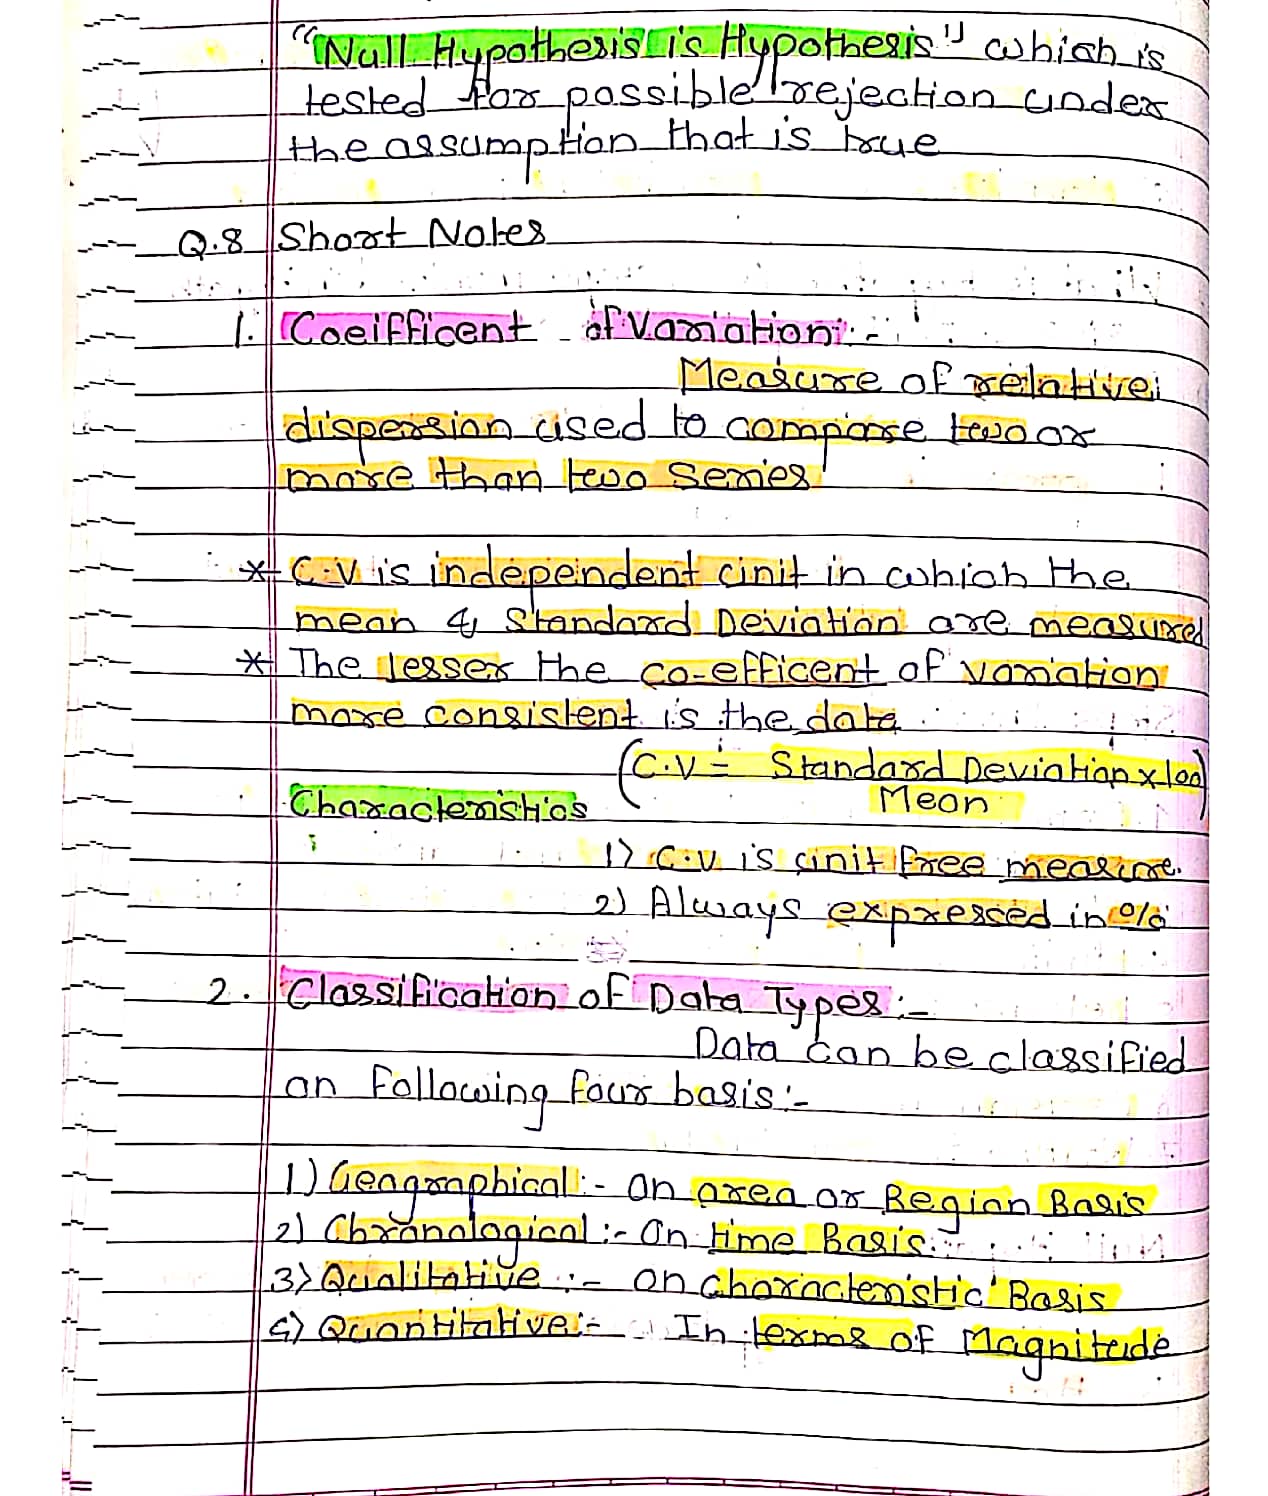 "Null Hypothesis is Hypothesis" which is
tested for possible rejection under
the assumption that is true
Q.8 Short Notes
1. Coeifficent of Variation :-
Measure of relative
dispersion used to compare two or
more than two Series
* C.V is independent unit in which the
mean & Standard Deviation are measured
* The lesser the co-efficent of variation
more consistent is the data
(C.V = Standard Deviation x 100)
Mean
Characteristics
1) C.V. is unit free measure.
2) Always expressed in %
2. Classification of Data Types :-
Data can be classified
on following four basis :-
1) Geographical :- On area or Region Basis
2) Chronological :- On time Basis.
3) Qualitative :- on characteristic Basis
4) Quantitative :- In terms of Magnitude